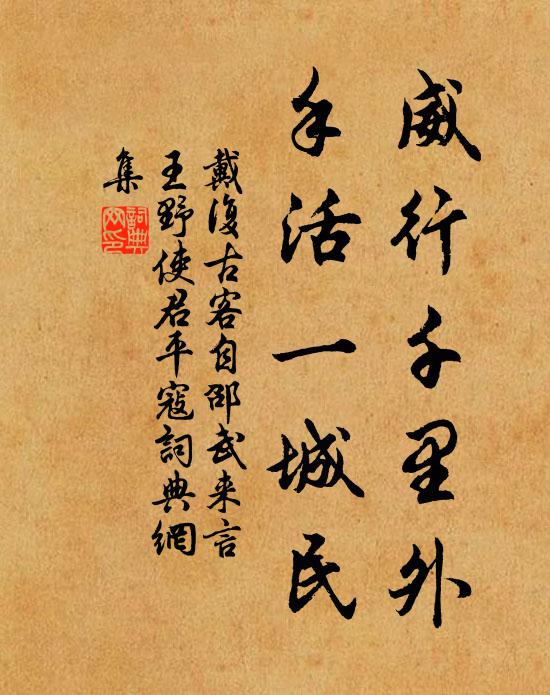 威行千里外
手活一城民
戴復古客自邵武来言
王野使君平寇詞典網
集
詞典網印